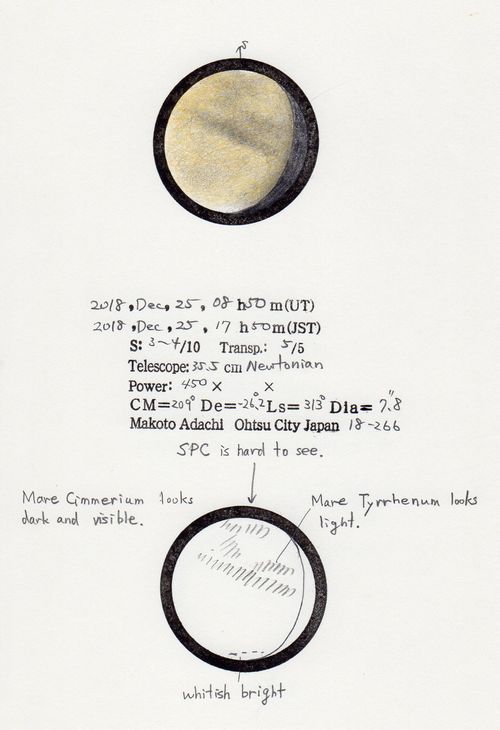 S
2018, Dec, 25, 08 h50 m(UT)
2018, Dec, 25, 17 h50m(JST)
S: 3~4/10 Transp.: 5/5
Telescope: 35.5 cm Newtonian
Power: 450 × ×
CM=209° De=-26.2° Ls= 313° Dia= 7.8"
Makoto Adachi Ohtsu City Japan 18-266
SPC is hard to see.
Mare Cimmerium looks
dark and visible.
Mare Tyrrhenum looks
light.
whitish bright